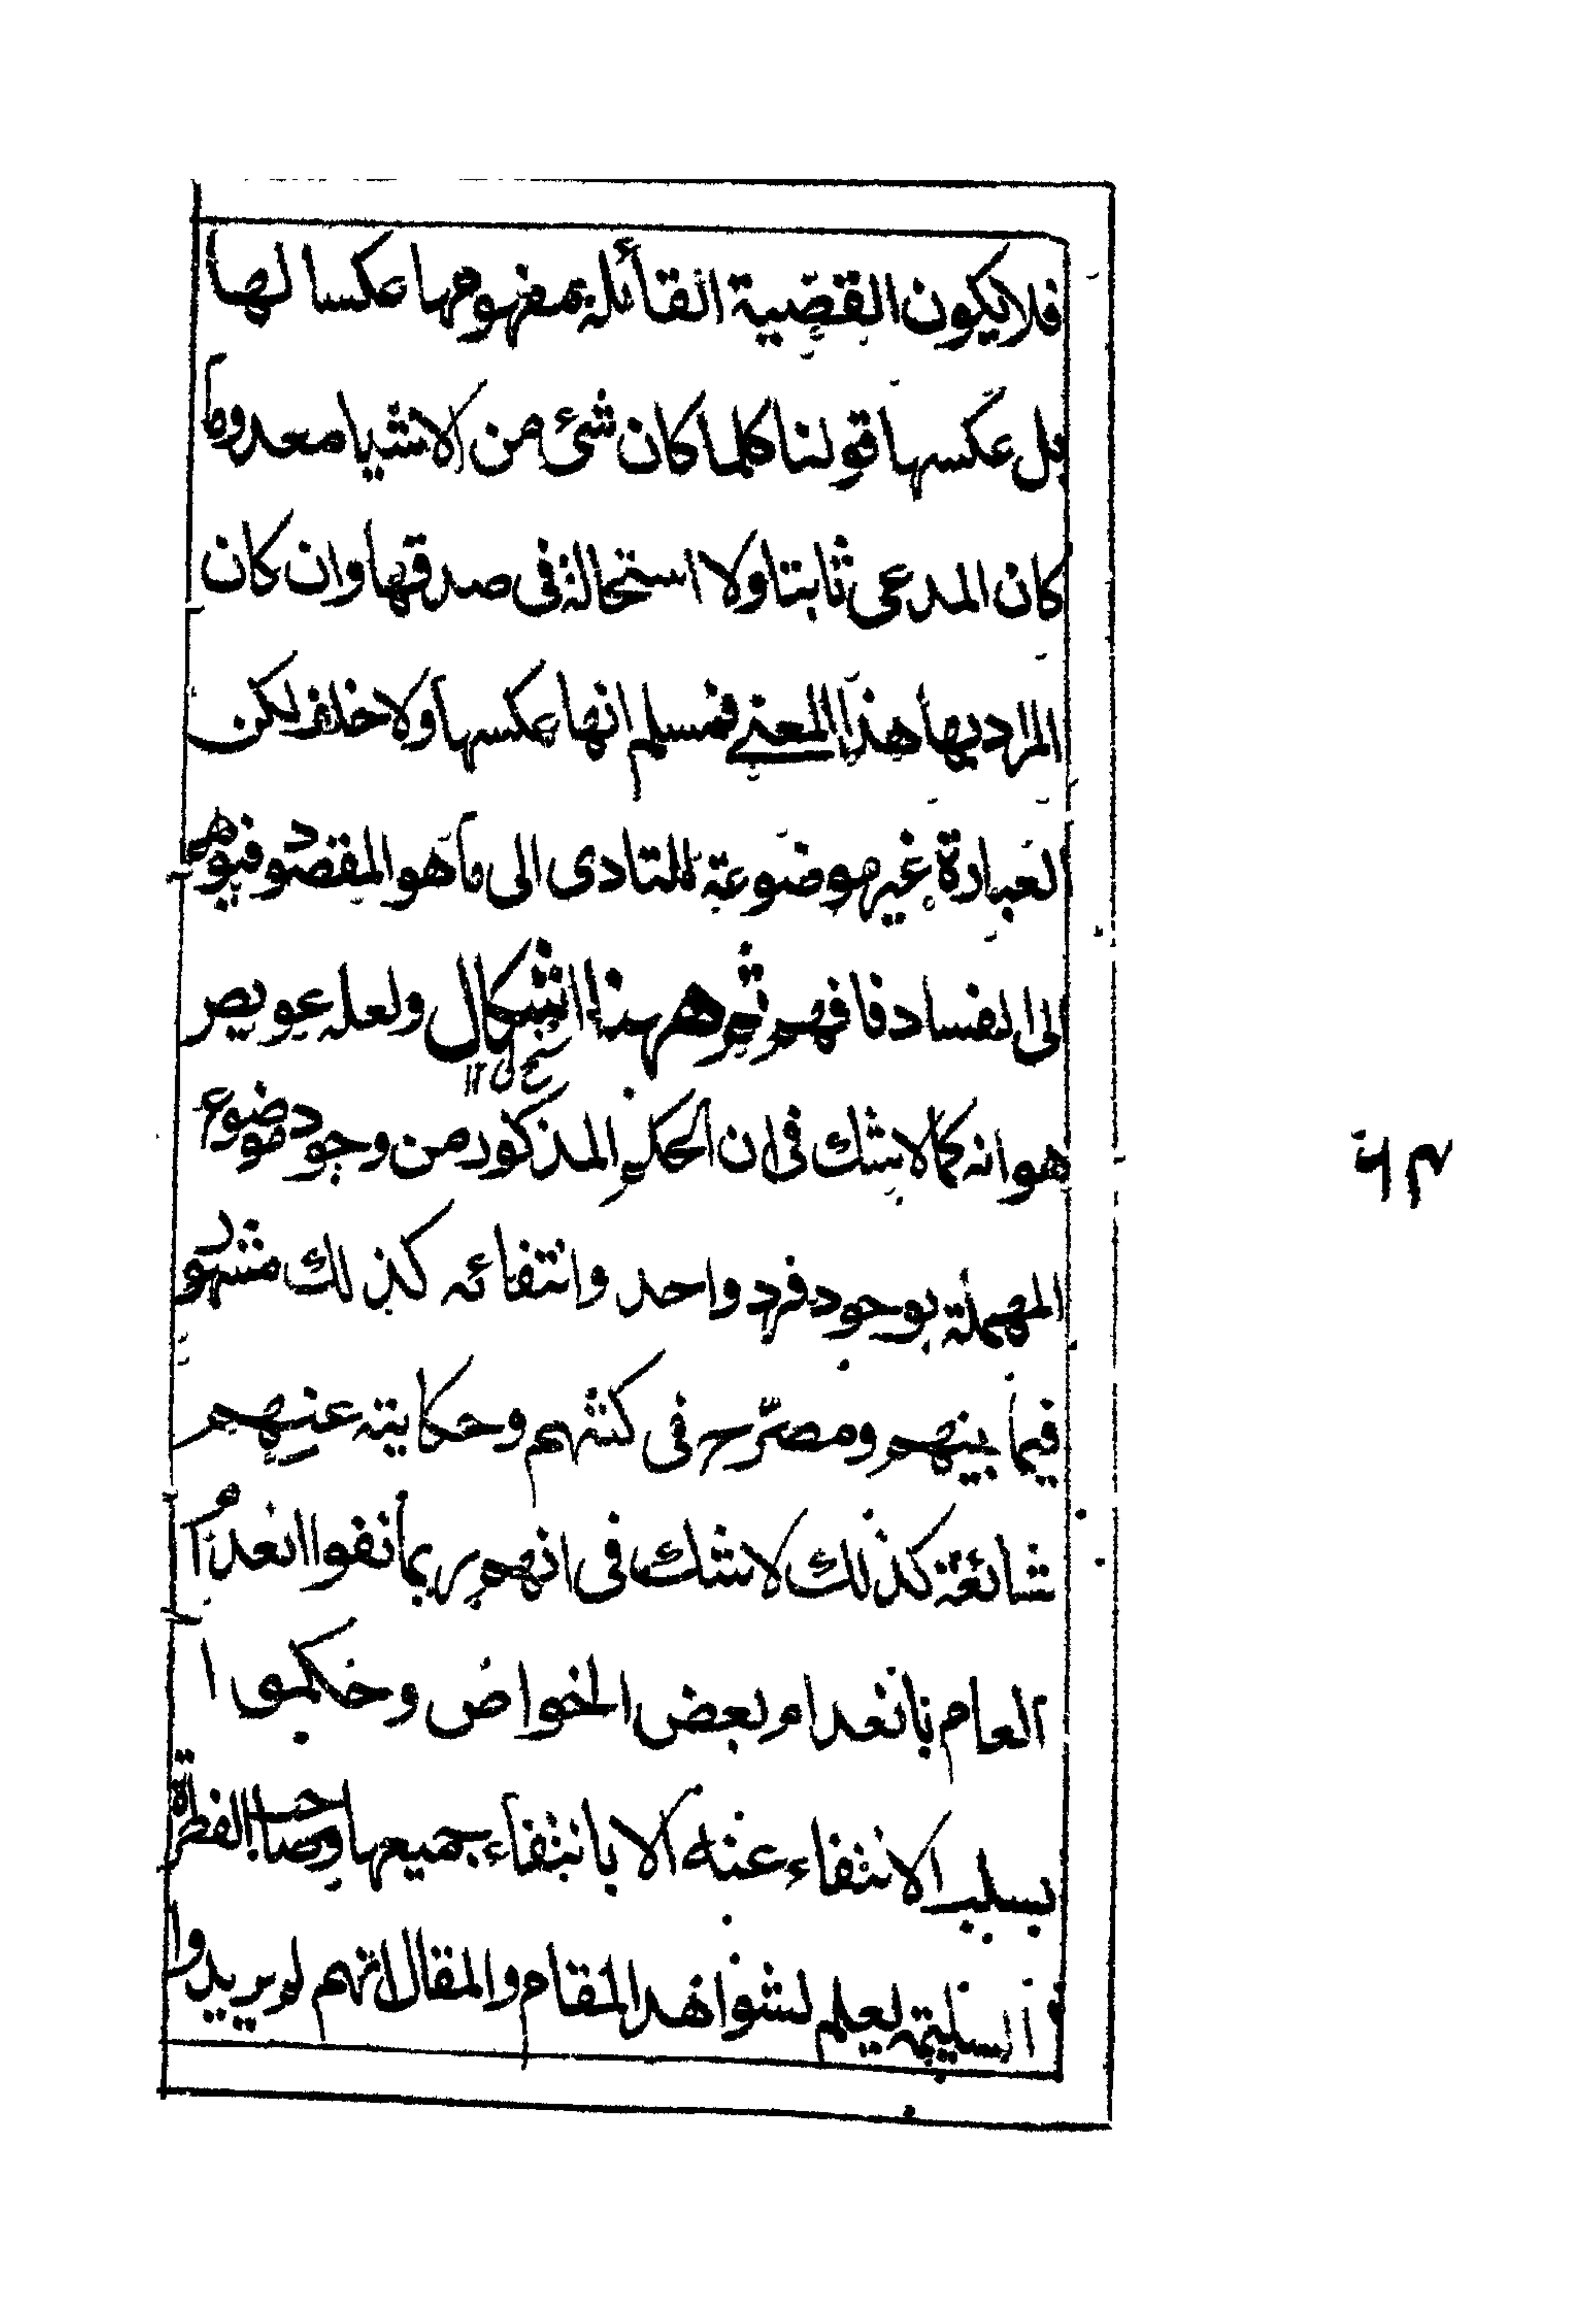 فلا يكون القضية القائلة بمفهومها عكسا لها
بل عكسها قولنا كلما كان شئ من الاشيا معدوما
كان المدعى ثابتا ولا استحالة فى صدقها وان كان
المراد بها هذا المعنے فمسلم انها عكسها ولا خلف لكن
العبارة غير موضوعة للتادى الى ما هو المقصود فيوهم
الى الفساد فافهم ثم ههنا اشكال ولعله عويص
هو انه كما لا شك فى ان الحكم المذكور من وجود موضوع
المهملة بوجود فرد واحد وانتفائه كذلك مشهور
فيما بينهم ومصرح فى كتبهم وحكايته عنهم
شائعة كذلك لا شك فى انهم ربما نفوا انعدام
العام بانعدام بعض الخواص وحكموا
بسلب الانتفاء عنه الا بانتفاء جميعها وصاحب الفطرة
السليمة يعلم لشواهد المقام والمقال انهم لم يريدوا